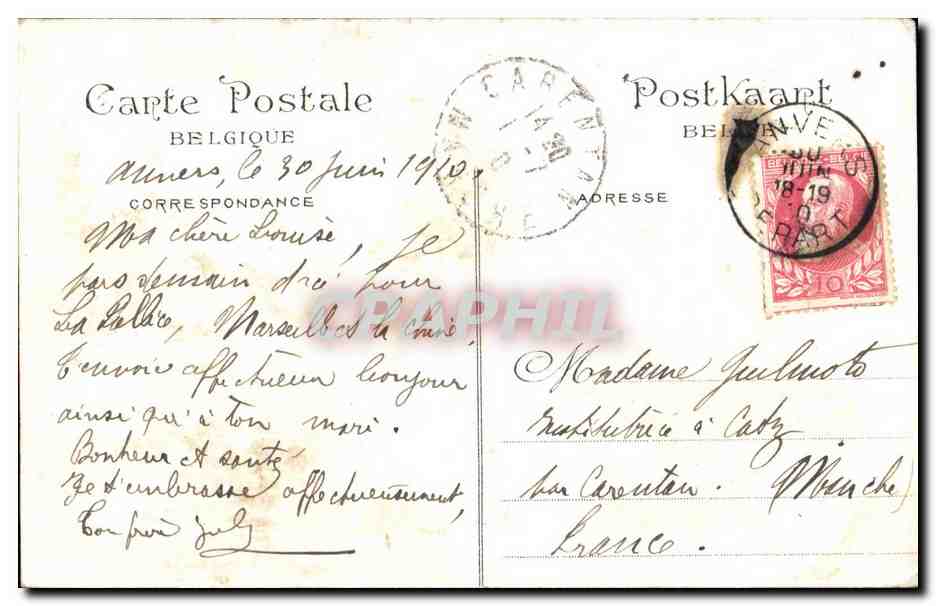 Carte Postale
BELGIQUE
Anvers, le 30 Juin 1910
CORRESPONDANCE
Ma chère Louise, Je
pars demain d'ici pour
La Pallice, Marseille et la Chine,
T'envoie affectueux bonjour
ainsi qu'à ton mari.
Bonheur et santé
Je t'embrasse affectueusement,
Ton frère July
CARENTAN
Postkaart
ADRESSE
ANVERS
30
JUIN
18-19
10
DEPART
10
Madame Guilmoto
Institutrice à Catz
par Carentan. (Manche)
France.
CPAPHIL